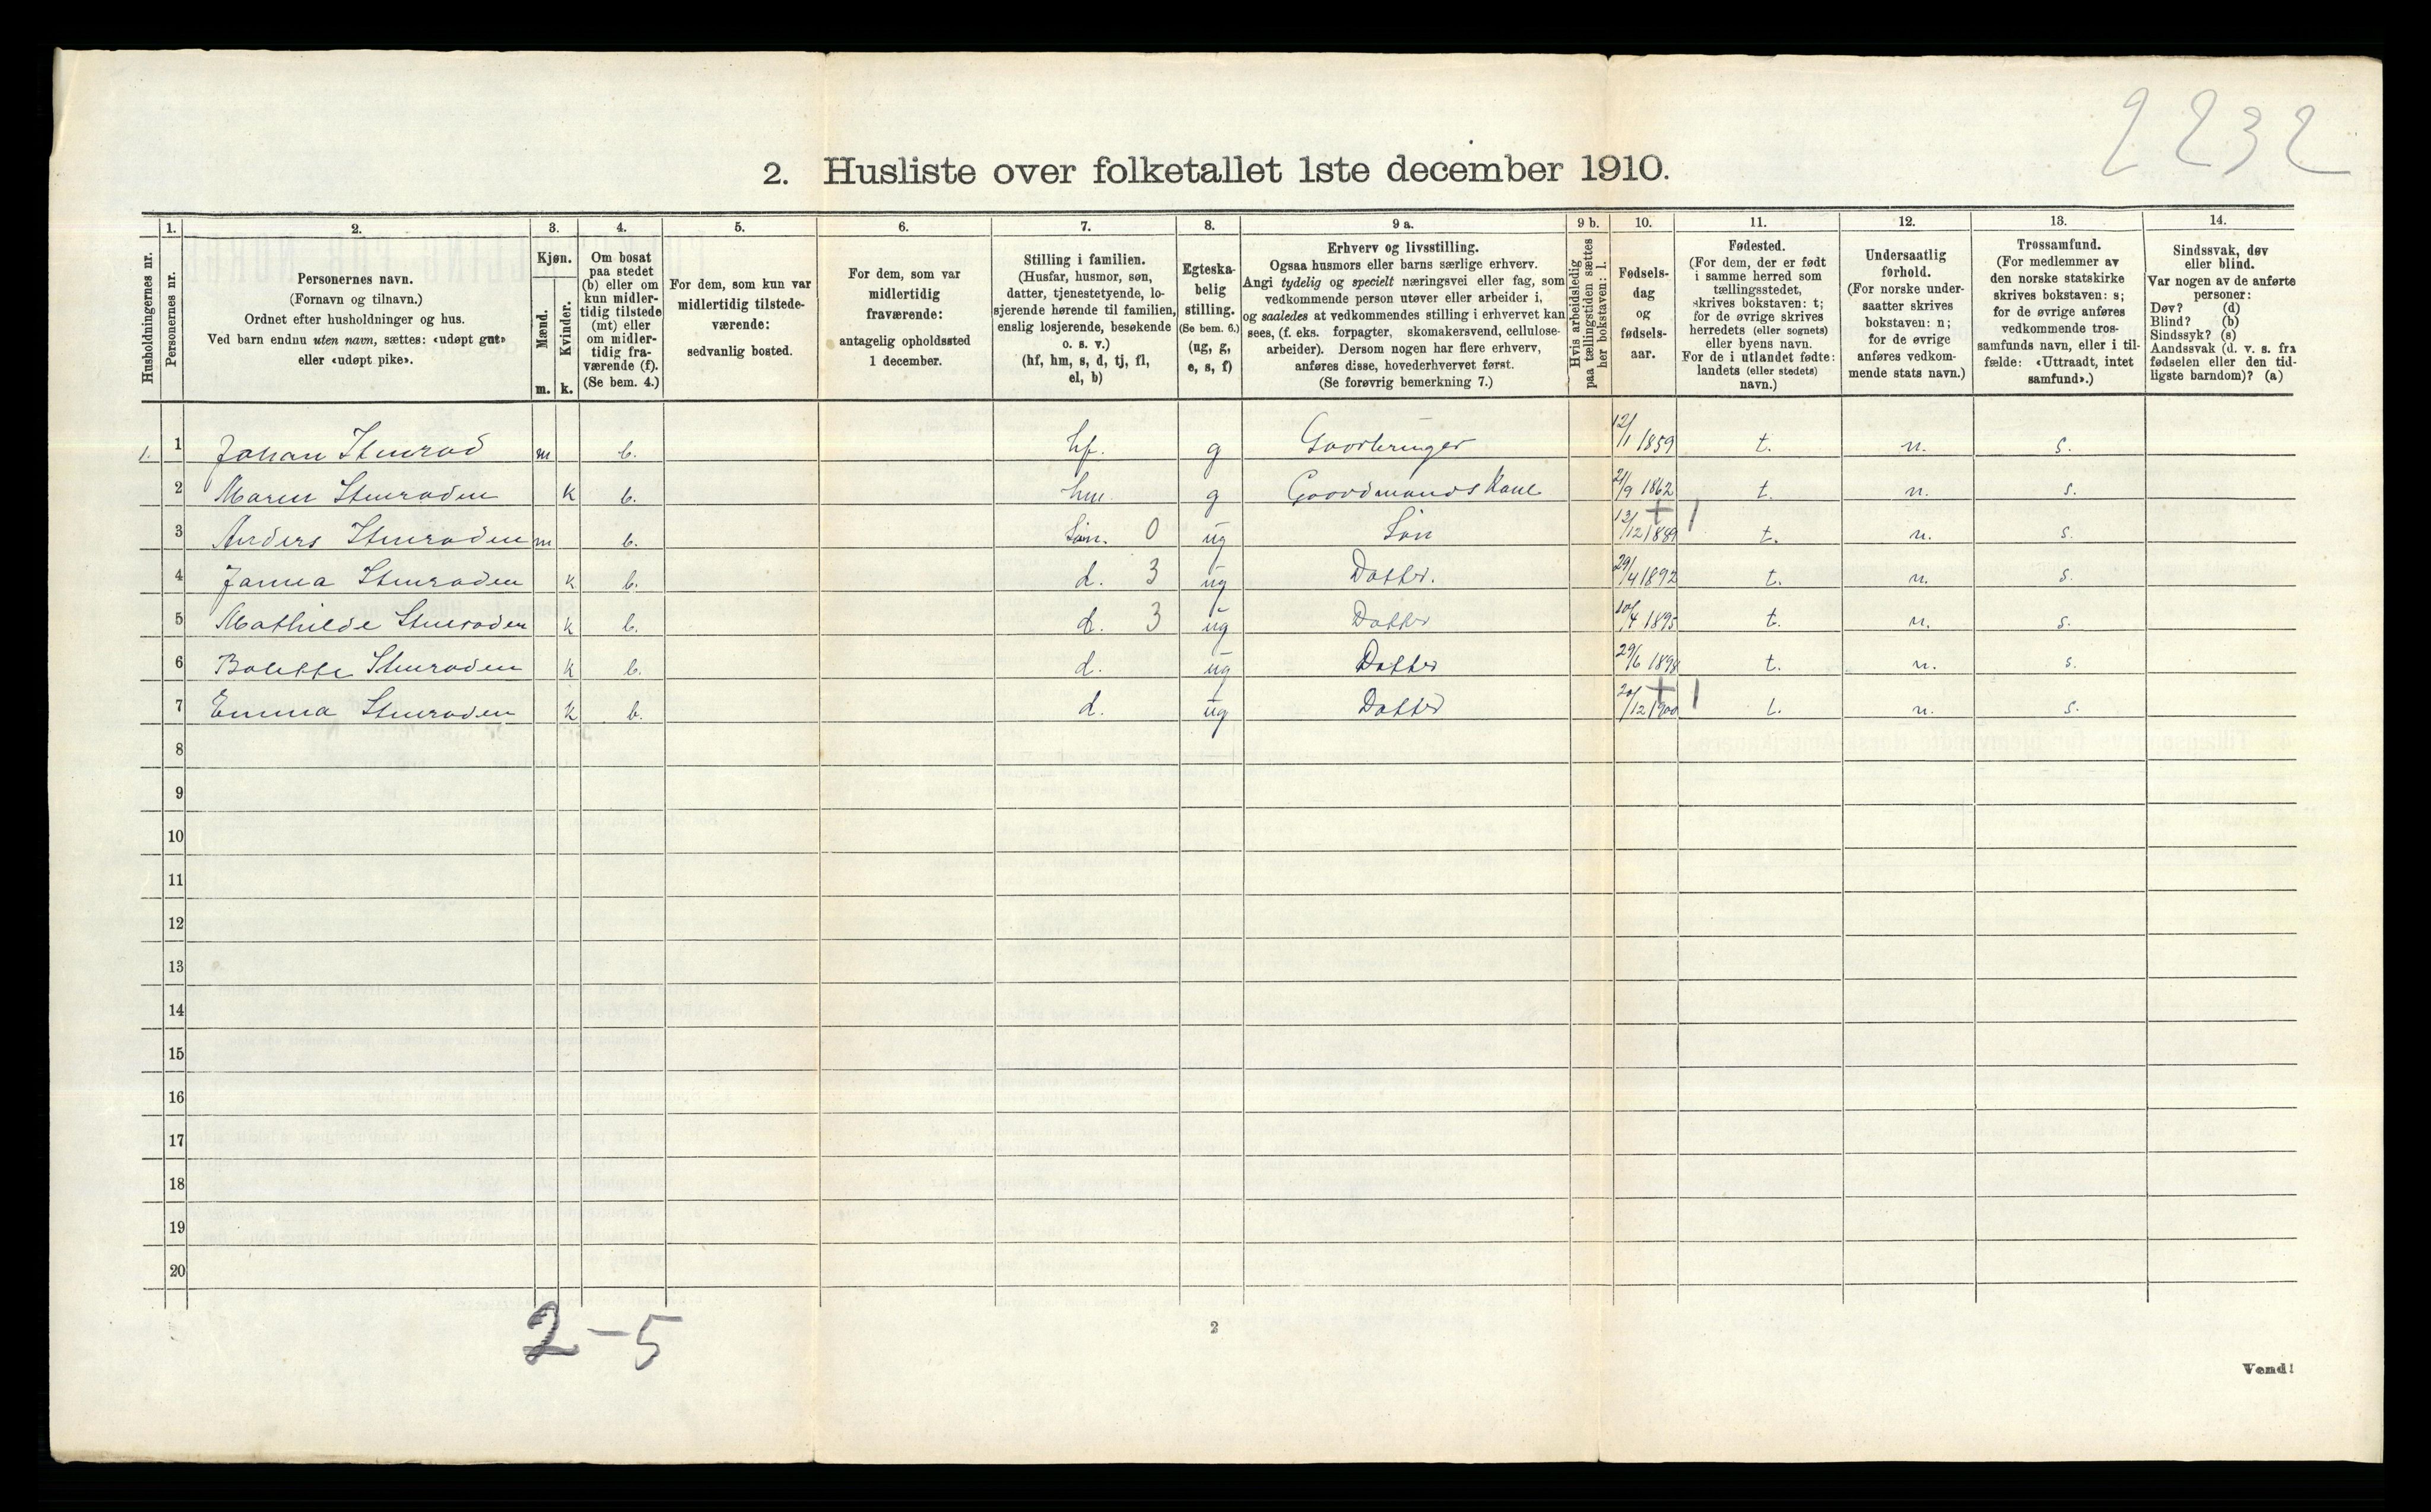 2232
2. Husliste over folketallet 1ste december 1910.
Husholdningernes nr.
1. Personernes nr.
2. Personernes navn.
(Fornavn og tilnavn.)
Ordnet efter husholdninger og hus.
Ved barn endnu uten navn, sættes: «udøpt gut»
eller «udøpt pike».
3. Kjøn.
Mænd. m.
Kvinder. k.
4. Om bosat
paa stedet
(b) eller om
kun midler-
tidig tilstede
(mt) eller
om midler-
tidig fra-
værende (f).
(Se bem. 4.)
5. For dem, som kun var
midlertidig tilstede-
værende:
sedvanlig bosted.
6. For dem, som var
midlertidig
fraværende:
antagelig opholdssted
1 december.
7. Stilling i familien.
(Husfar, husmor, søn,
datter, tjenestetyende, lo-
sjerende hørende til familien,
enslig losjerende, besøkende
o. s. v.)
(hf, hm, s, d, tj, fl,
el, b)
8. Egteska-
belig
stilling.
(Se bem. 6.)
(ug, g,
e, s, f)
9 a. Erhverv og livsstilling.
Ogsaa husmors eller barns særlige erhverv.
Angi tydelig og specielt næringsvei eller fag, som
vedkommende person utøver eller arbeider i,
og saaledes at vedkommendes stilling i erhvervet kan
sees, (f. eks. forpagter, skomakersvend, cellulose-
arbeider). Dersom nogen har flere erhverv,
anføres disse, hovederhvervet først.
(Se forøvrig bemerkning 7.)
9 b. Hvis arbeidsledig
paa tællingstiden sættes
her bokstaven: l.
10. Fødsels-
dag
og
fødsels-
aar.
11. Fødested.
(For dem, der er født
i samme herred som
tællingsstedet,
skrives bokstaven: t;
for de øvrige skrives
herredets (eller sognets)
eller byens navn.
For de i utlandet fødte:
landets (eller stedets)
navn.)
12. Undersaatlig
forhold.
(For norske under-
saatter skrives
bokstaven: n;
for de øvrige
anføres vedkom-
mende stats navn.)
13. Trossamfund.
(For medlemmer av
den norske statskirke
skrives bokstaven: s;
for de øvrige anføres
vedkommende tros-
samfunds navn, eller i til-
fælde: «Uttraadt, intet
samfund».)
14. Sindssvak, døv
eller blind.
Var nogen av de anførte
personer:
Døv? (d)
Blind? (b)
Sindssyk? (s)
Aandssvak (d. v. s. fra
fødselen eller den tid-
ligste barndom)? (a)
1. 1 Johan Stenrod m b. hf. g Gaardbruger 12/1 1859 t. n. s.
2 Maren Stenroden k b. hm. g Gaardmands Kone 21/9 1862 t. n. s.
3 Anders Stenroden m b. Søn. 0 ug Søn 13/12 1889 + 1 t. n. s.
4 Janna Stenroden k b. d. 3 ug Datter. 29/4 1892 t. n. s.
5 Mathilde Stenroden k b. d. 3 ug Datter 10/4 1895 t. n. s.
6 Bolette Stenroden k b. d. ug Datter 29/6 1898 t. n. s.
7 Emma Stenroden k b. d. ug Datter 20/12 1900 + 1 t. n. s.
8
9
10
11
12
13
14
15
16
17
18
19
20
2-5
2
Vend!